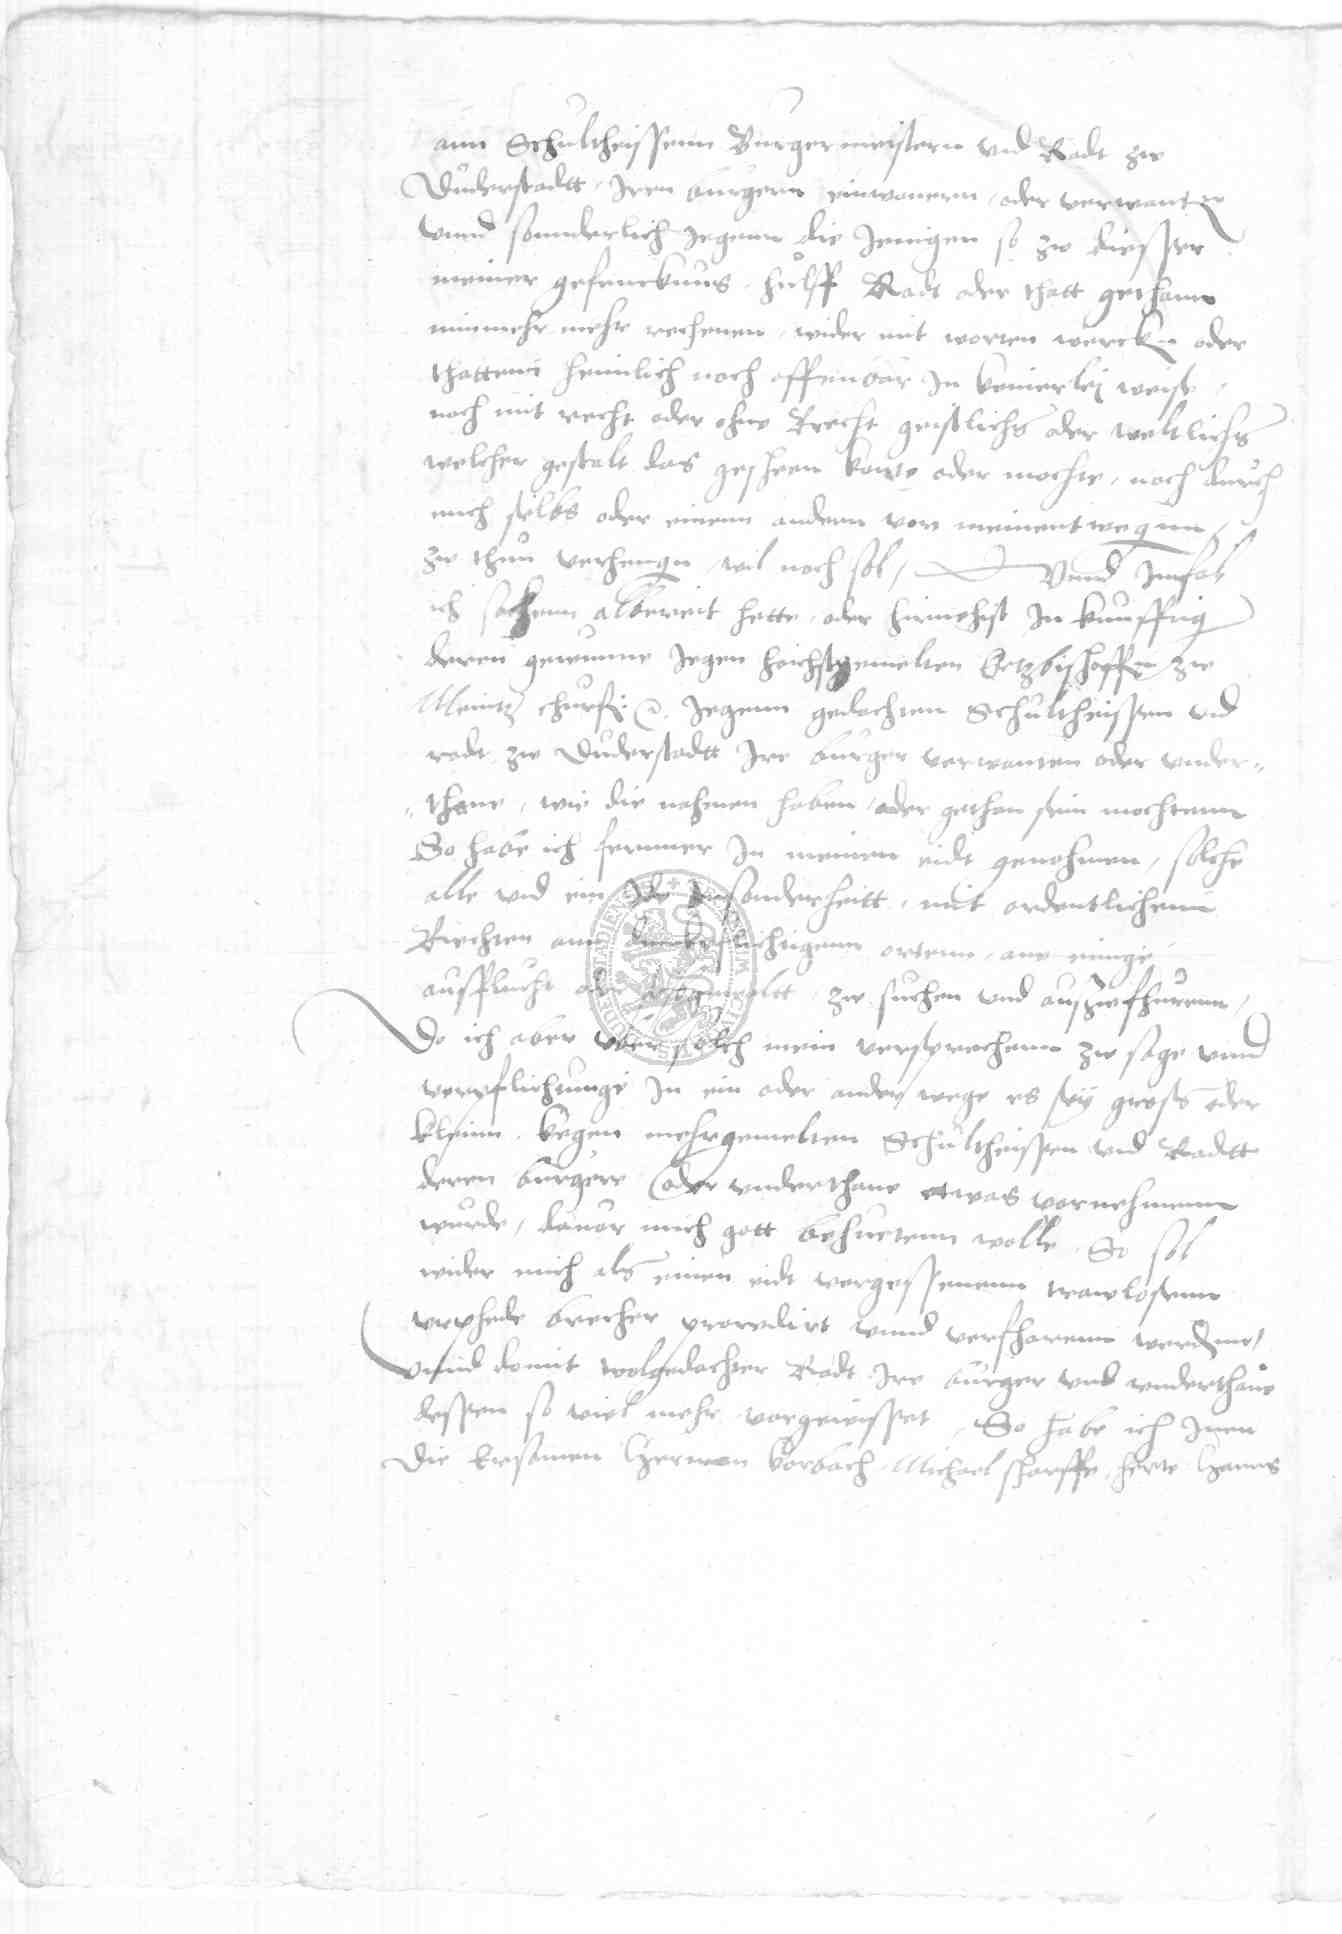 ann Schultheissenn Burgermeistern und Radt zw
Duderstadtt, Iren burgern einwonern, oder verwanten
vnnd sonnderlich Jegenn die Jenigen so zw diesser
meiner gefenckнus, hulff Radt oder thatt gethann
nimmehr mehr rechenen, wider mit worten wercken oder
thattenn heimlich noch offenbar In keinerlej weise,
noch mit recht oder ohne Recht geistlichs oder weltlichs
welcher gestalt das gescheen konte oder mochte, noch durch
mich selbs oder einenn andern von meinentwegenn,
zw thun verhengen, wil noch sol, Vnnd Imfal
ich sachenn albereit hette, oder hirnehist In kunfftig
deren gewunne Jegen hochstgemelten Ertzbischoffen zw
Meintz churf: Jegenn gedachten Schultheissen und
radt zw Duderstadtt Ire burger verwanten oder vnder-
thane, wie die nahmen haben, oder gethan sein mochtenn
So habe ich fernner In meinen eidt genohmen, solche
alle vnd ein Jde Insonderheitt, mit ordentlichenn
Rechten ann ortenn, ane einige
ausflucht oder zw suchen vnd auszwfhurenn,
Do ich aber vber solch mein versprechenn zw sage vnnd
verpflichtunge In ein oder ander wege es sey gross oder
kleinn, kegen mehrgemelten Schultheissen vnd Radtt
deren burgere oder vnderthane etwas vornehmenn
wurde, dauor mich gott behuetenn wolle, So sol
wider mich als einen eidt vergessenenn trawlosenn
vrphede brecher procedirt vnnd verfharenn werdenn,
Vnnd domit wolgedachter Radt Ire burger vnd vnderthane
dessen so viel mehr vorgewissert, So habe ich Inen
die Ersamen Herman Korbach, Michael scharffe, Hanns